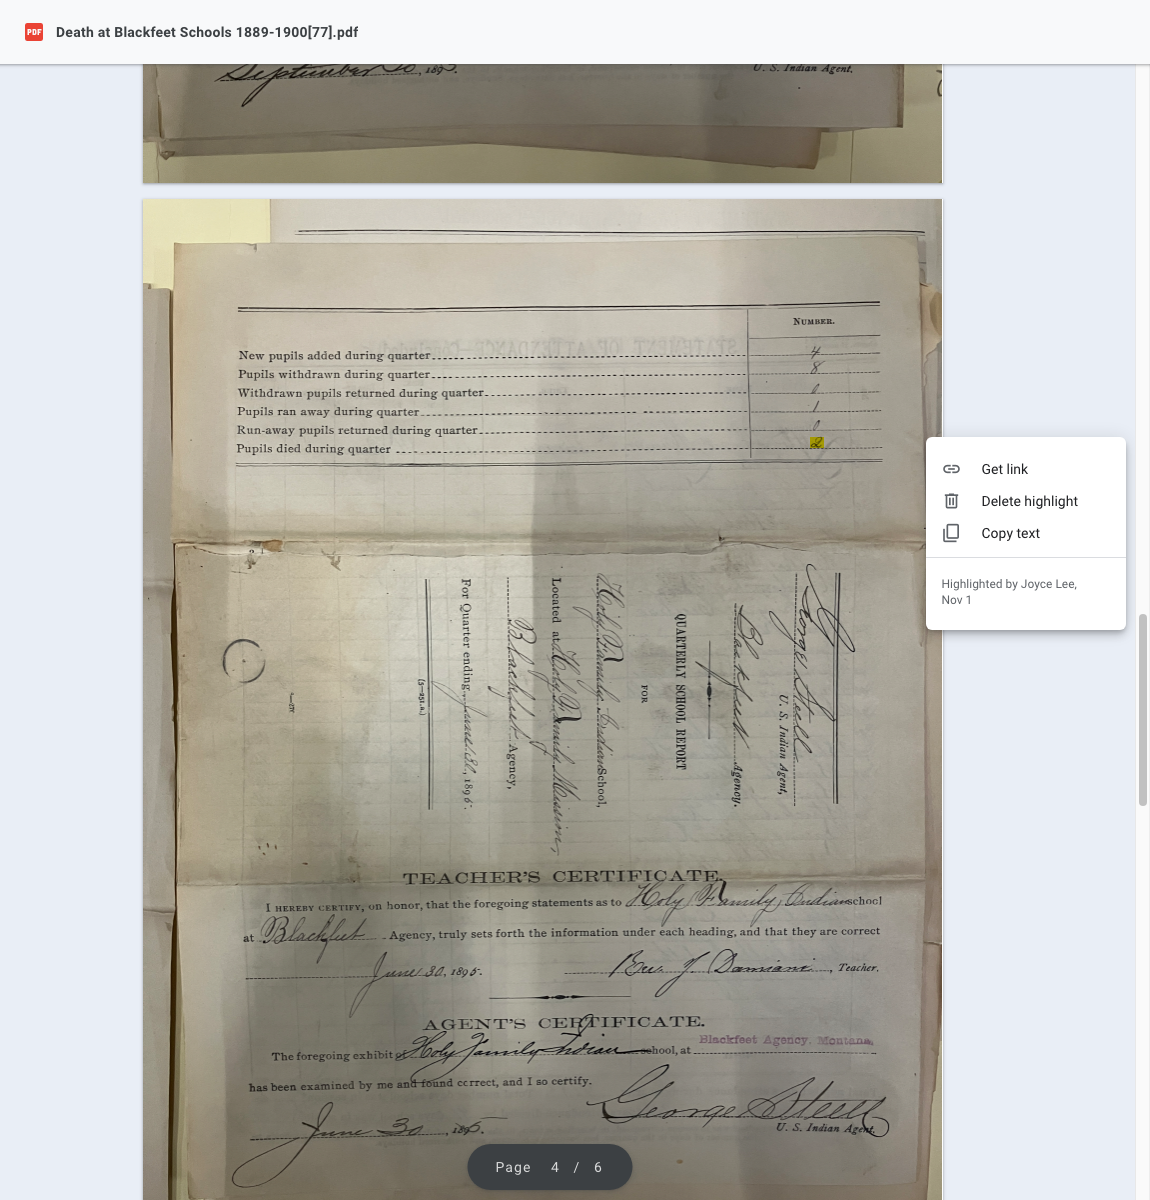 PDF Death at Blackfeet Schools 1889-1900[77].pdf
September 30, 189
U. S. Indian Agent.
NUMBER.
New pupils added during quarter 4
Pupils withdrawn during quarter 8
Withdrawn pupils returned during quarter 0
Pupils ran away during quarter 1
Run-away pupils returned during quarter 0
Pupils died during quarter 2
Get link
Delete highlight
Copy text
Highlighted by Joyce Lee,
Nov 1
George Steell
U. S. Indian Agent,
Blackfeet Agency.
QUARTERLY SCHOOL REPORT
FOR
Holy Family Indian School,
Located at Holy Family Mission,
Blackfeet Agency,
For Quarter ending June 30, 1895.
(5—251.a.)
TEACHER'S CERTIFICATE.
I HEREBY CERTIFY, on honor, that the foregoing statements as to Holy Family Indian school
at Blackfeet Agency, truly sets forth the information under each heading, and that they are correct
June 30, 1895. Rev. J. Damiani, Teacher.
AGENT'S CERTIFICATE.
The foregoing exhibit of Holy Family Indian school, at Blackfeet Agency, Montana,
has been examined by me and found correct, and I so certify.
George Steell
June 30, 1895. U. S. Indian Agent.
Page 4 / 6